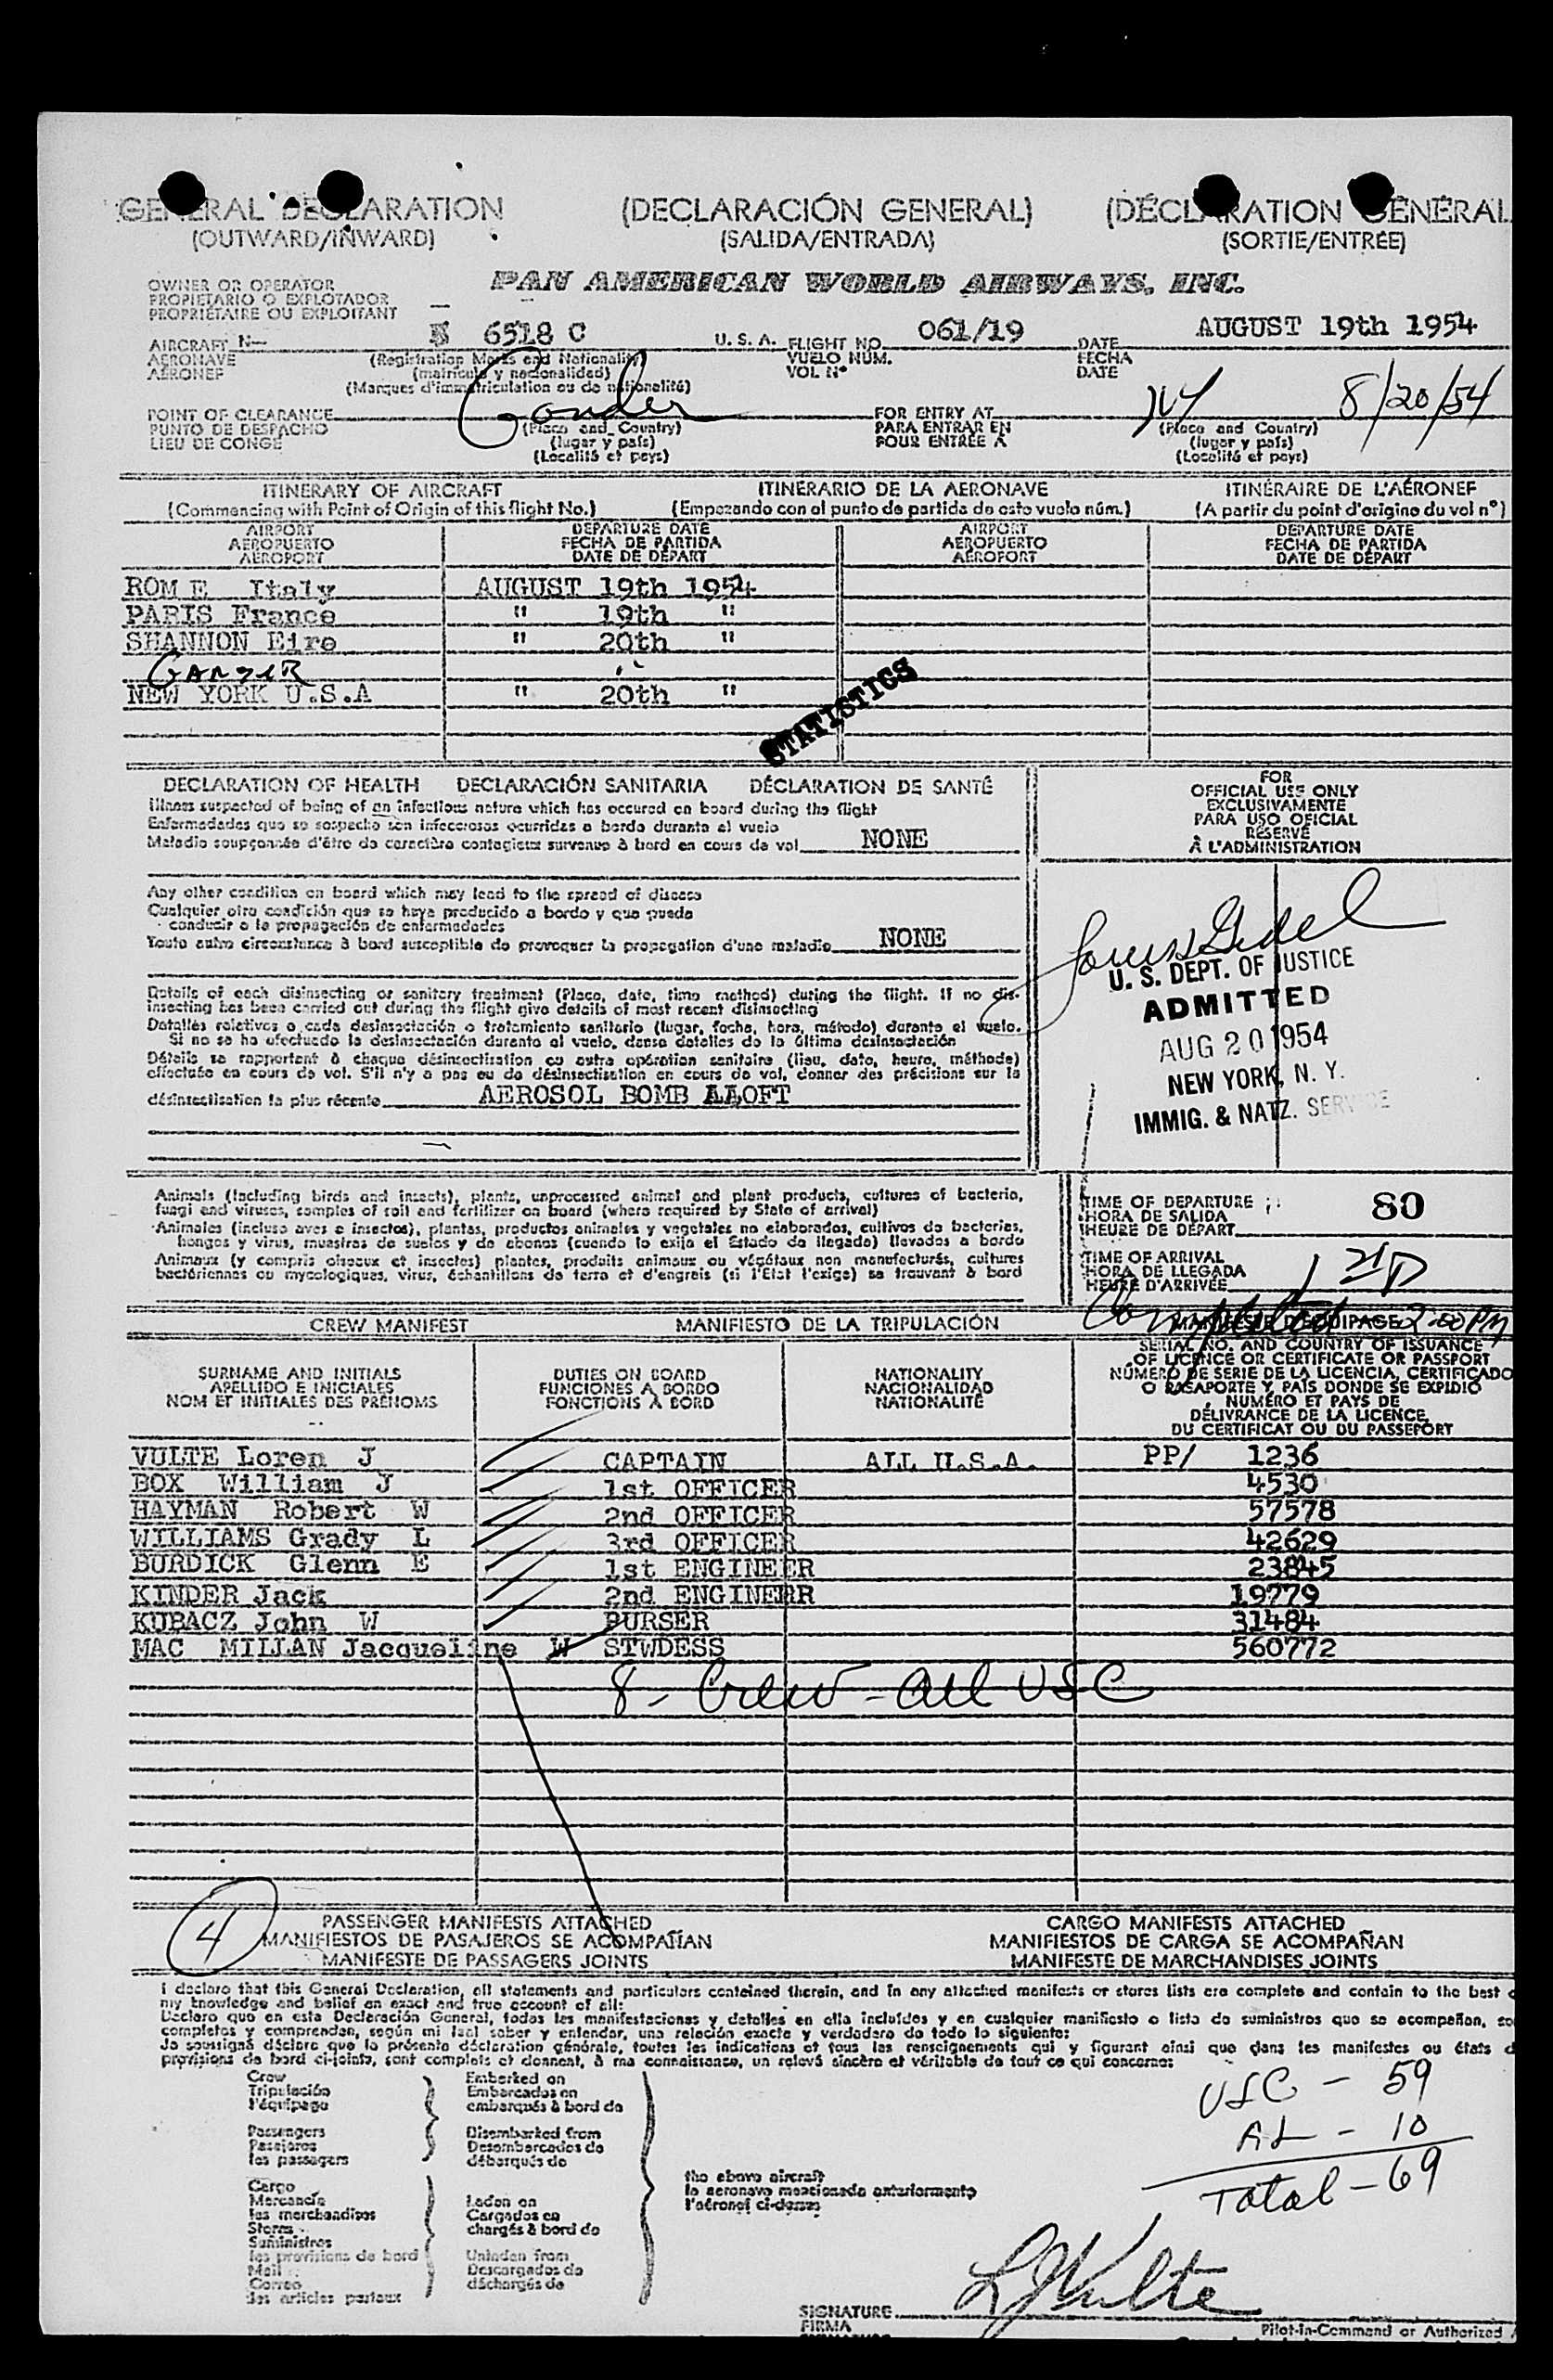 GENERAL DECLARATION (DECLARACIÓN GENERAL) (DÉCLARATION GÉNÉRAL
(OUTWARD/INWARD) (SALIDA/ENTRADA) (SORTIE/ENTRÉE)
OWNER OR OPERATOR
PROPIETARIO O EXPLOTADOR
PROPRIÉTAIRE OU EXPLOITANT
PAN AMERICAN WORLD AIRWAYS, INC.
AIRCRAFT N— 6518 C U. S. A. FLIGHT NO. 061/19 DATE AUGUST 19th 1954
AERONAVE (Registration Marks and Nationality) VUELO NÚM. FECHA
AÉRONEF (matrícula y nacionalidad) VOL N° DATE
(Marques d'immatriculation ou de nationalité)
POINT OF CLEARANCE Gander FOR ENTRY AT NY 8/20/54
PUNTO DE DESPACHO (Place and Country) PARA ENTRAR EN (Place and Country)
LIEU DE CONGÉ (lugar y país) POUR ENTRÉE À (lugar y país)
(Localité et pays) (Localité et pays)
ITINERARY OF AIRCRAFT ITINERARIO DE LA AERONAVE ITINÉRAIRE DE L'AÉRONEF
(Commencing with Point of Origin of this flight No.) (Empezando con el punto de partida de este vuelo núm.) (A partir du point d'origine du vol n°)
AIRPORT DEPARTURE DATE AIRPORT DEPARTURE DATE
AEROPUERTO FECHA DE PARTIDA AEROPUERTO FECHA DE PARTIDA
AÉROPORT DATE DE DÉPART AÉROPORT DATE DE DÉPART
ROM E Italy AUGUST 19th 1954
PARIS France " 19th "
SHANNON Eire " 20th "
GANDER "
NEW YORK U.S.A " 20th "
STATISTICS
DECLARATION OF HEALTH DECLARACIÓN SANITARIA DÉCLARATION DE SANTÉ
Illness suspected of being of an infectious nature which has occured on board during the flight
Enfermedades que se sospecha son infecciosas ocurridas a bordo durante el vuelo
Maladie soupçonnée d'être de caractère contagieux survenue à bord en cours de vol NONE
Any other condition on board which may lead to the spread of disease
Cualquier otra condición que se haya producido a bordo y que pueda
conducir a la propagación de enfermedades
Toute autre circonstance à bord susceptible de provoquer la propagation d'une maladie NONE
Details of each disinsecting or sanitary treatment (Place, date, time method) during the flight. If no dis-
insecting has been carried out during the flight give details of most recent disinsecting
Detalles relativos a cada desinsectación o tratamiento sanitario (lugar, fecha, hora, método) durante el vuelo.
Si no se ha efectuado la desinsectación durante el vuelo, dense detalles de la última desinsectación
Détails se rapportant à chaque désinsectisation ou autre opération sanitaire (lieu, date, heure, méthode)
effectuée en cours de vol. S'il n'y a pas eu de désinsectisation en cours de vol, donner des précisions sur la
désinsectisation la plus récente AEROSOL BOMB ALOFT
FOR
OFFICIAL USE ONLY
EXCLUSIVAMENTE
PARA USO OFICIAL
RÉSERVÉ
À L'ADMINISTRATION
U. S. DEPT. OF JUSTICE
ADMITTED
AUG 20 1954
NEW YORK, N. Y.
IMMIG. & NATZ. SERVICE
Animals (including birds and insects), plants, unprocessed animal and plant products, cultures of bacteria,
fungi and viruses, samples of soil and fertilizer on board (where required by State of arrival)
Animales (incluso aves e insectos), plantas, productos animales y vegetales no elaborados, cultivos de bacterias,
hongos y virus, muestras de suelos y de abonos (cuando lo exija el Estado de llegada) llevados a bordo
Animaux (y compris oiseaux et insectes) plantes, produits animaux ou végétaux non manufacturés, cultures
bactériennes ou mycologiques, virus, échantillons de terre et d'engrais (si l'État l'exige) se trouvant à bord
TIME OF DEPARTURE 80
HORA DE SALIDA
HEURE DE DÉPART
TIME OF ARRIVAL
HORA DE LLEGADA
HEURE D'ARRIVÉE
Completed 2:00 PM
CREW MANIFEST MANIFIESTO DE LA TRIPULACIÓN MANIFESTE D'ÉQUIPAGE
SURNAME AND INITIALS DUTIES ON BOARD NATIONALITY SERIAL NO. AND COUNTRY OF ISSUANCE
APELLIDO E INICIALES FUNCIONES A BORDO NACIONALIDAD OF LICENCE OR CERTIFICATE OR PASSPORT
NOM ET INITIALES DES PRÉNOMS FONCTIONS À BORD NATIONALITÉ NÚMERO DE SERIE DE LA LICENCIA, CERTIFICADO
O PASAPORTE Y PAÍS DONDE SE EXPIDIÓ
NUMÉRO ET PAYS DE
DÉLIVRANCE DE LA LICENCE,
DU CERTIFICAT OU DU PASSEPORT
VULTE Loren J CAPTAIN ALL U.S.A. PP/ 1236
BOX William J 1st OFFICER 4530
HAYMAN Robert W 2nd OFFICER 57578
WILLIAMS Grady L 3rd OFFICER 42629
BURDICK Glenn E 1st ENGINEER 23845
KINDER Jack 2nd ENGINERR 19779
KUBACZ John W PURSER 31484
MAC MILLAN Jacqueline W STWDESS 560772
8 - Crew - all USC
4
PASSENGER MANIFESTS ATTACHED CARGO MANIFESTS ATTACHED
MANIFIESTOS DE PASAJEROS SE ACOMPAÑAN MANIFIESTOS DE CARGA SE ACOMPAÑAN
MANIFESTE DE PASSAGERS JOINTS MANIFESTE DE MARCHANDISES JOINTS
I declare that this General Declaration, all statements and particulars contained therein, and in any attached manifests or stores lists are complete and contain to the best
my knowledge and belief an exact and true account of all:
Declaro que en esta Declaración General, todas las manifestaciones y detalles en ella incluídos y en cualquier manifiesto o lista de suministros que se acompañan, so
completos y comprenden, según mi leal saber y entender, una relación exacta y verdadera de todo lo siguiente:
Je soussigné déclare que la présente déclaration générale, toutes les indications et tous les renseignements qui y figurant ainsi que dans les manifestes ou états
provisions de bord ci-joints, sont complets et donnent, à ma connaissance, un relevé sincère et véritable de tout ce qui concerne:
Crew Embarked on
Tripulación Embarcados en
l'équipage embarqués à bord de
Passengers Disembarked from
Pasajeros Desembarcados de
les passagers débarqués de
the above aircraft
la aeronave mencionada anteriormente
l'aéronef ci-dessus
Cargo
Mercancía Laden on
les marchandises Cargados en
Stores chargés à bord de
Suministros
les provisions de bord Unladen from
Mail Descargados de
Correo déchargés de
les articles postaux
USC - 59
AL - 10
Total - 69
SIGNATURE LJVulte
FIRMA Pilot-in-Command or Authorized